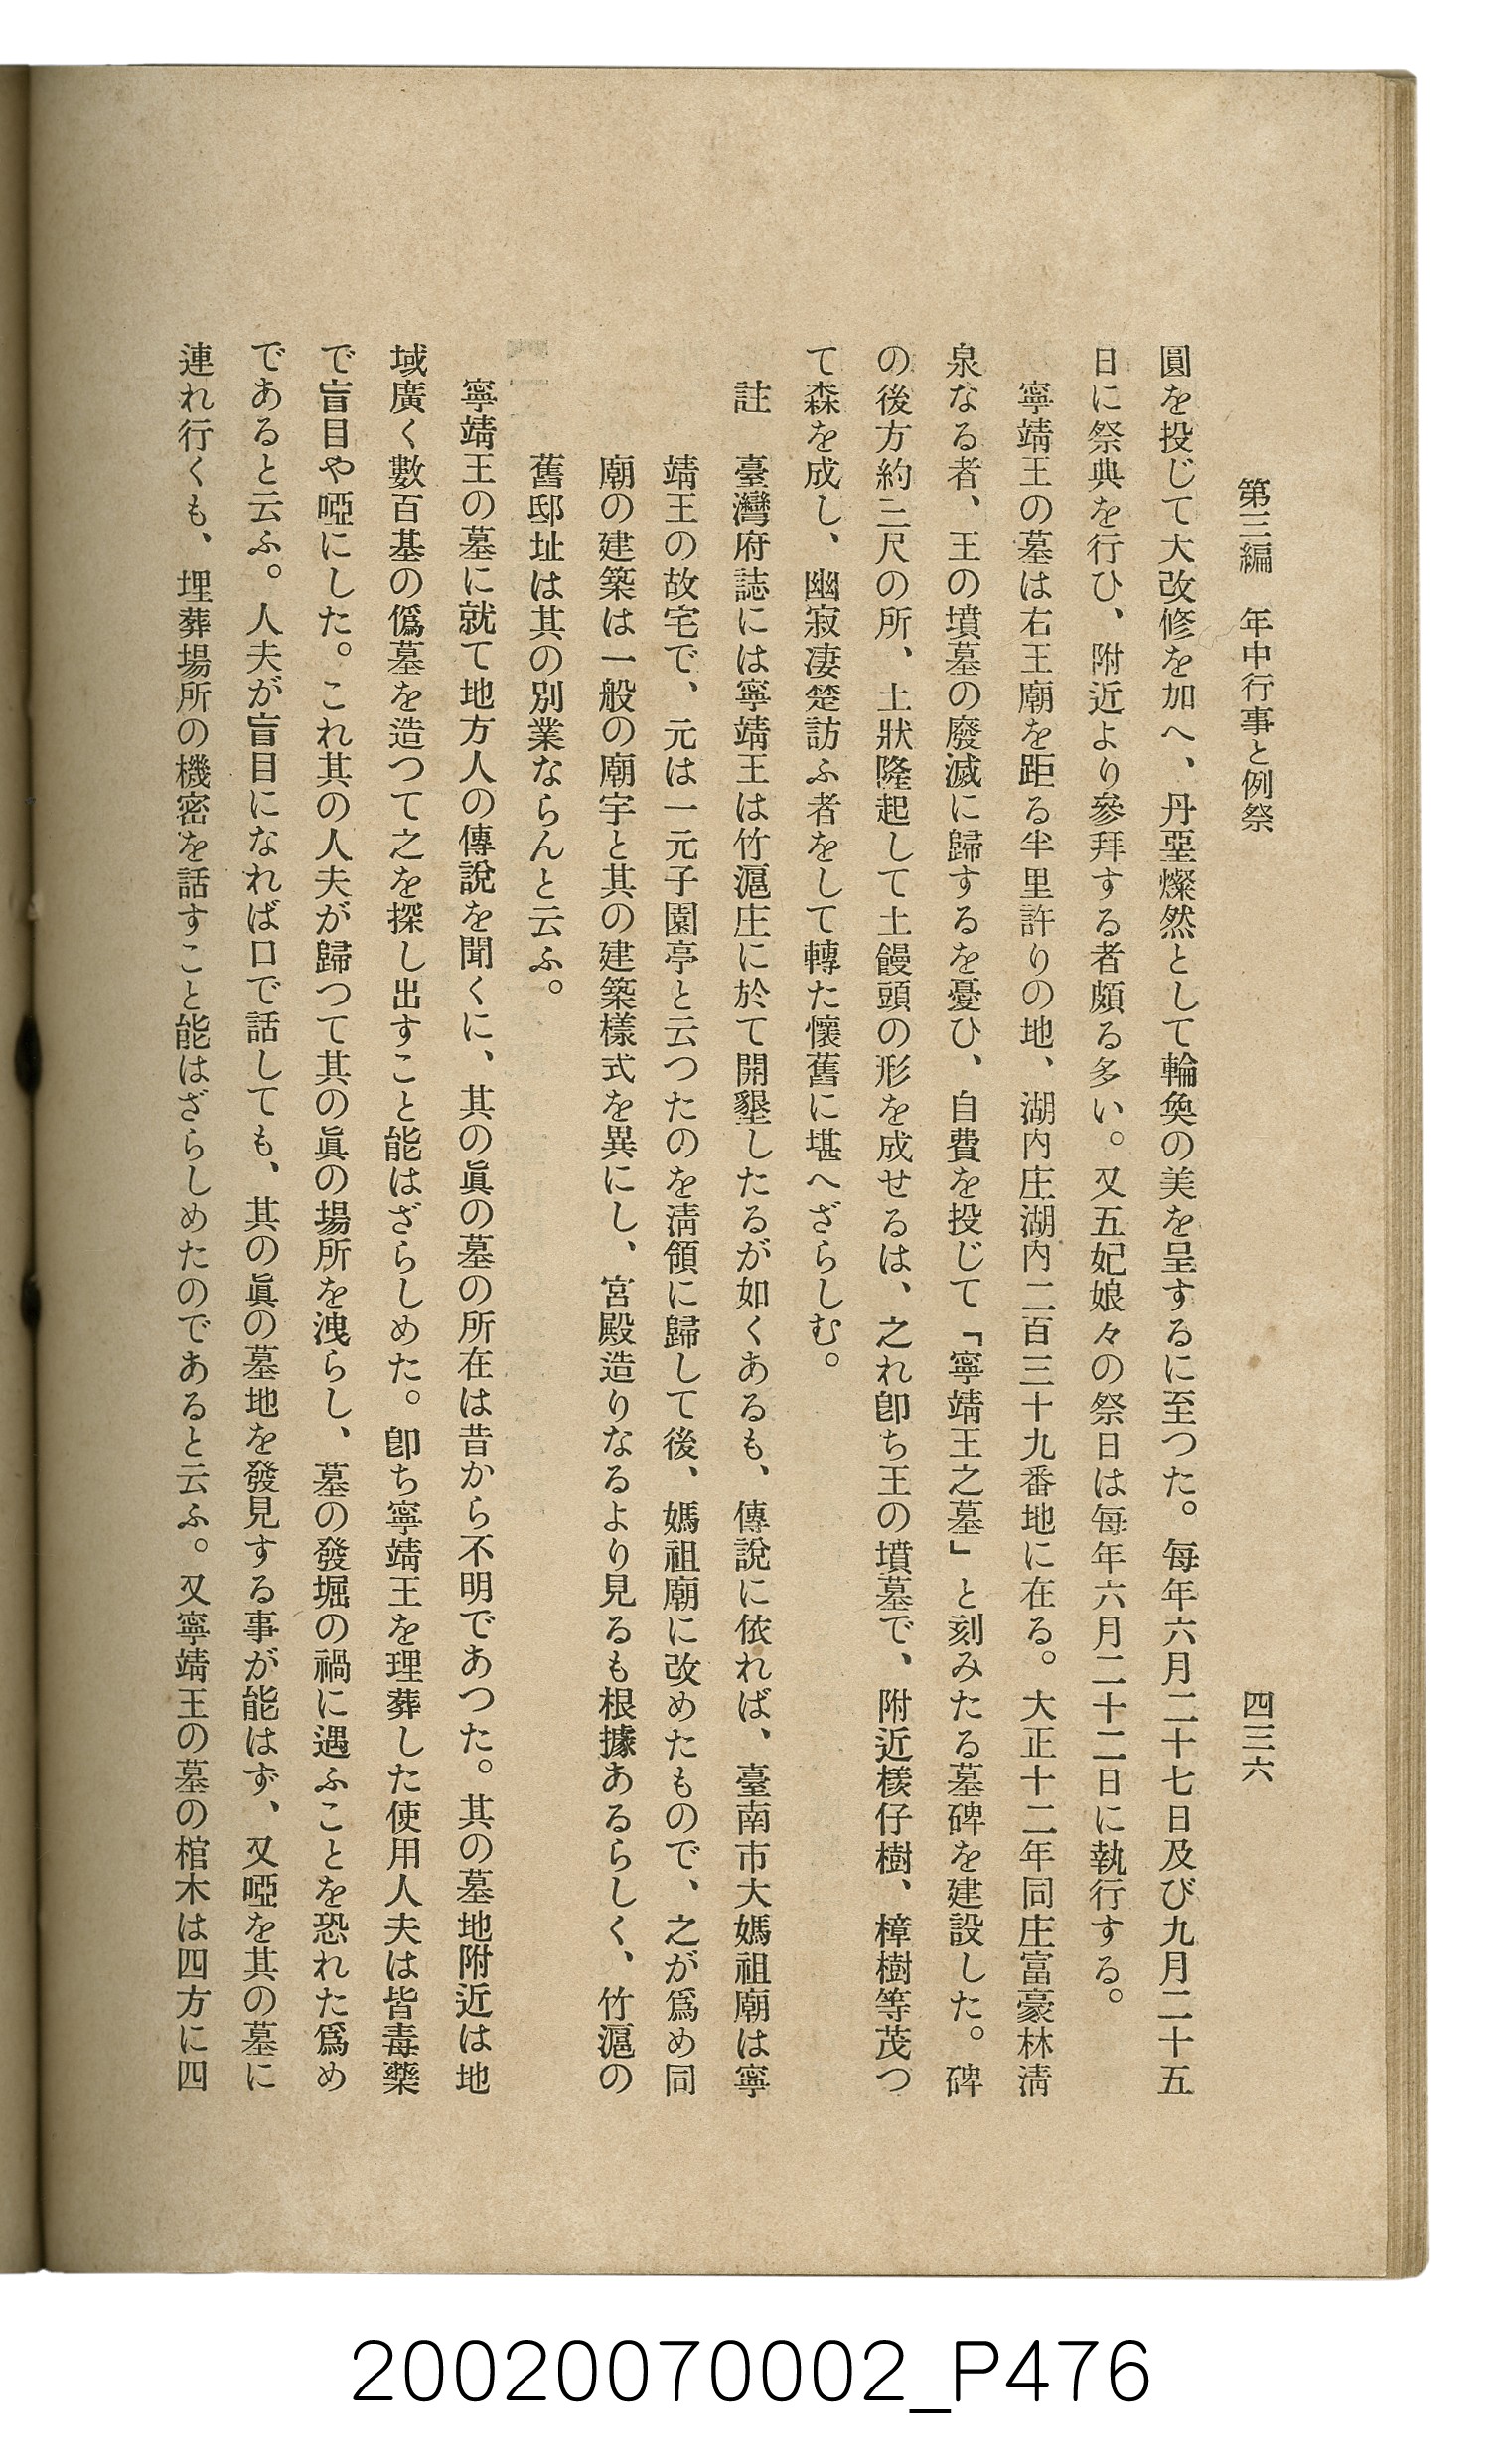 第三編　年中行事と例祭　四三六
圓を投じて大改修を加へ、丹堊燦然として輪奐の美を呈するに至つた。每年六月二十七日及び九月二十五
日に祭典を行ひ、附近より參拜する者頗る多い。又五妃娘々の祭日は每年六月二十二日に執行する。
　寧靖王の墓は右王廟を距る半里許りの地、湖內庄湖內二百三十九番地に在る。大正十二年同庄富豪林淸
泉なる者、王の墳墓の廢滅に歸するを憂ひ、自費を投じて「寧靖王之墓」と刻みたる墓碑を建設した。碑
の後方約三尺の所、土狀隆起して土饅頭の形を成せるは、之れ卽ち王の墳墓で、附近檨仔樹、樟樹等茂つ
て森を成し、幽寂凄楚訪ふ者をして轉た懷舊に堪へざらしむ。
註　臺灣府誌には寧靖王は竹滬庄に於て開墾したるが如くあるも、傳說に依れば、臺南市大媽祖廟は寧
靖王の故宅で、元は一元子園亭と云つたのを淸領に歸して後、媽祖廟に改めたもので、之が爲め同
廟の建築は一般の廟宇と其の建築樣式を異にし、宮殿造りなるより見るも根據あるらしく、竹滬の
舊邸址は其の別業ならんと云ふ。
　寧靖王の墓に就て地方人の傳說を聞くに、其の眞の墓の所在は昔から不明であつた。其の墓地附近は地
域廣く數百基の僞墓を造つて之を探し出すこと能はざらしめた。卽ち寧靖王を理葬した使用人夫は皆毒藥
で盲目や啞にした。これ其の人夫が歸つて其の眞の場所を洩らし、墓の發堀の禍に遇ふことを恐れた爲め
であると云ふ。人夫が盲目になれば口で話しても、其の眞の墓地を發見する事が能はず、又啞を其の墓に
連れ行くも、埋葬場所の機密を話すこと能はざらしめたのであると云ふ。又寧靖王の墓の棺木は四方に四
20020070002_P476